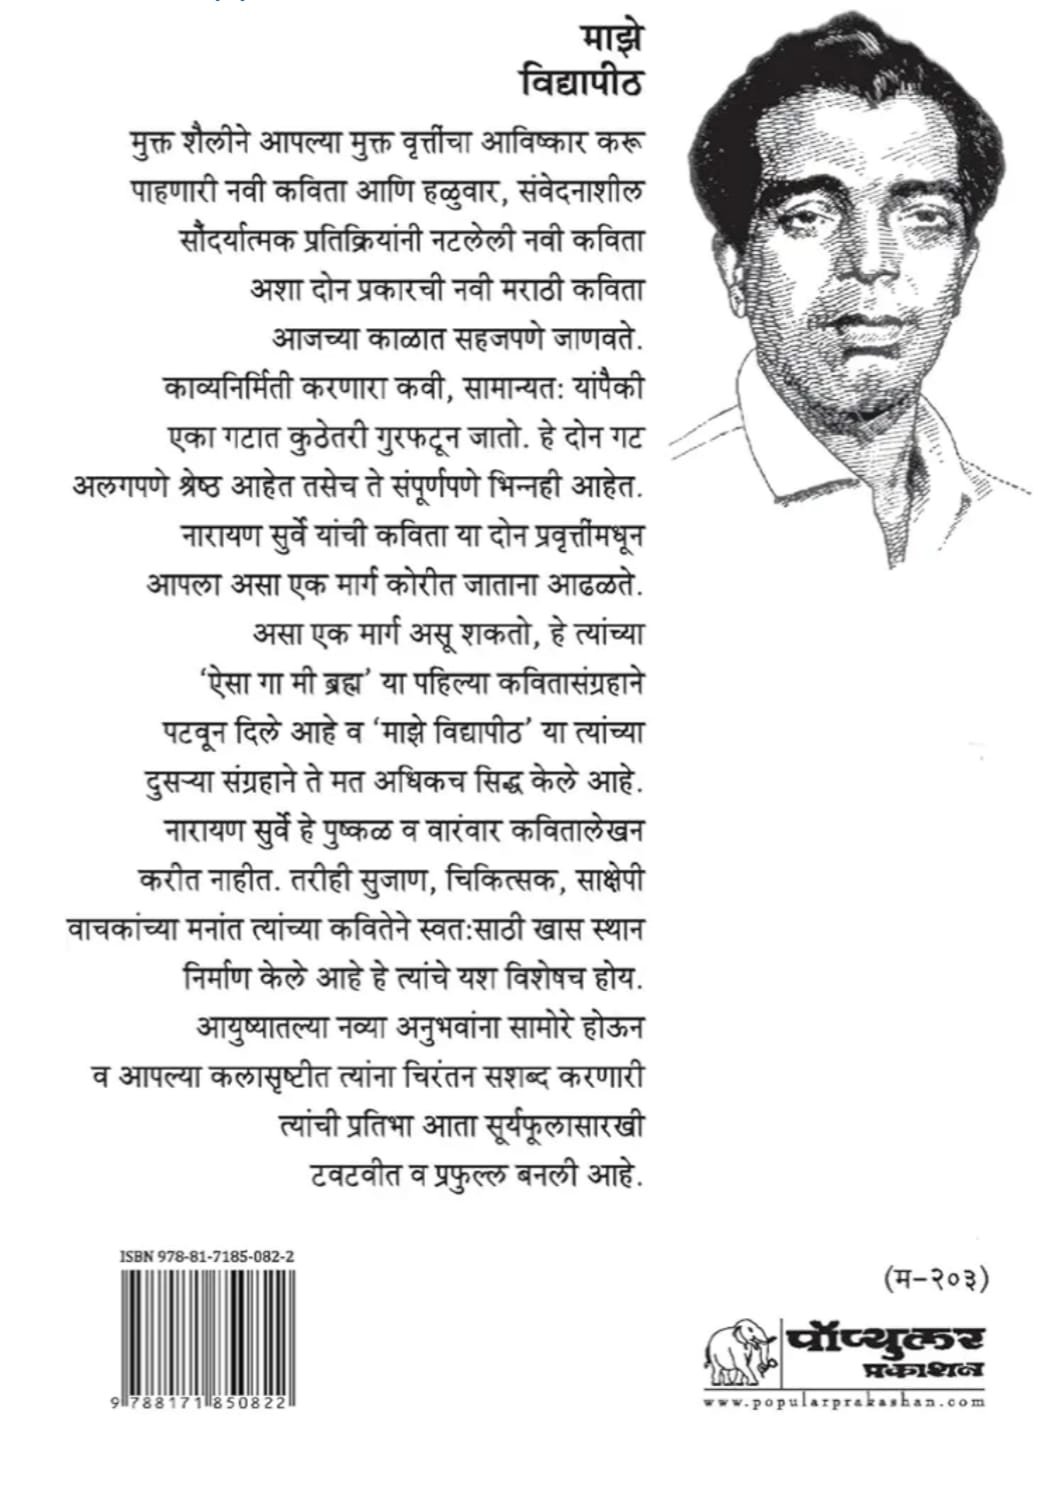 माझे
विद्यापीठ
मुक्त शैलीने आपल्या मुक्त वृत्तींचा आविष्कार करू
पाहणारी नवी कविता आणि हळुवार, संवेदनाशील
सौंदर्यात्मक प्रतिक्रियांनी नटलेली नवी कविता
अशा दोन प्रकारची नवी मराठी कविता
आजच्या काळात सहजपणे जाणवते.
काव्यनिर्मिती करणारा कवी, सामान्यतः यांपैकी
एका गटात कुठेतरी गुरफटून जातो. हे दोन गट
अलगपणे श्रेष्ठ आहेत तसेच ते संपूर्णपणे भिन्नही आहेत.
नारायण सुर्वे यांची कविता या दोन प्रवृत्तींमधून
आपला असा एक मार्ग कोरीत जाताना आढळते.
असा एक मार्ग असू शकतो, हे त्यांच्या
‘ऐसा गा मी ब्रह्म’ या पहिल्या कवितासंग्रहाने
पटवून दिले आहे व ‘माझे विद्यापीठ’ या त्यांच्या
दुसऱ्या संग्रहाने ते मत अधिकच सिद्ध केले आहे.
नारायण सुर्वे हे पुष्कळ व वारंवार कवितालेखन
करीत नाहीत. तरीही सुजाण, चिकित्सक, साक्षेपी
वाचकांच्या मनांत त्यांच्या कवितेने स्वतःसाठी खास स्थान
निर्माण केले आहे हे त्यांचे यश विशेषच होय.
आयुष्यातल्या नव्या अनुभवांना सामोरे होऊन
व आपल्या कलासृष्टीत त्यांना चिरंतन सशब्द करणारी
त्यांची प्रतिभा आता सूर्यफूलासारखी
टवटवीत व प्रफुल्ल बनली आहे.
ISBN 978-81-7185-082-2
9 788171 850822
(म-२०३)
पॉप्युलर
प्रकाशन
www.popularprakashan.com